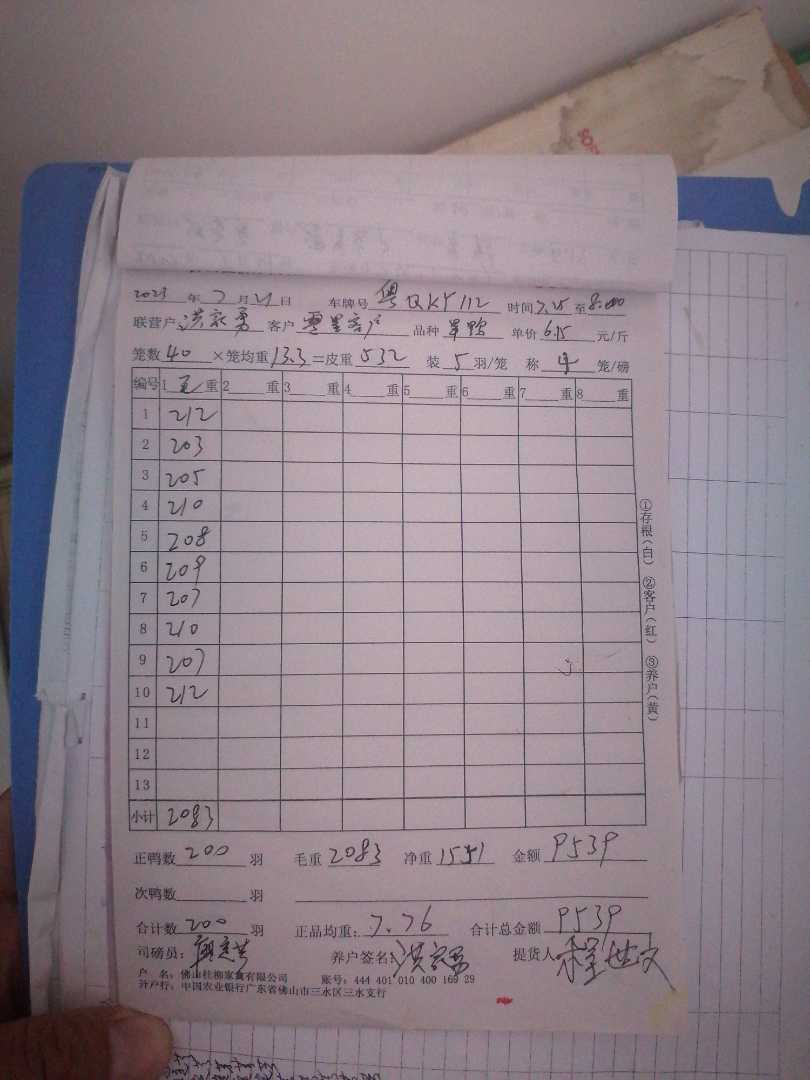 2023年7月21日 车牌号 粤QKY112 时间7.25至8:00
联营户 洪家勇 客户 零星客户 品种 单价6.15元/斤
笼数40×笼均重13.3=皮重532 装5羽/笼 称4笼/磅
编号 1毛重 2重 3重 4重 5重 6重 7重 8重
1 212
2 203
3 205
4 210
5 208
6 209
7 207
8 210
9 207
10 212
11
12
13
小计 2083
正鸭数200羽 毛重2083 净重1551 金额9539
次鸭数 羽
合计数200羽 正品均重:7.76 合计总金额9539
司磅员: 养户签名:洪家勇 提货人 程世文
户 名:佛山桂柳家禽有限公司 账号:444 401 010 400 169 29
开户行:中国农业银行广东省佛山市三水区三水支行
①存根(白) ②客户(红) ③养户(黄)